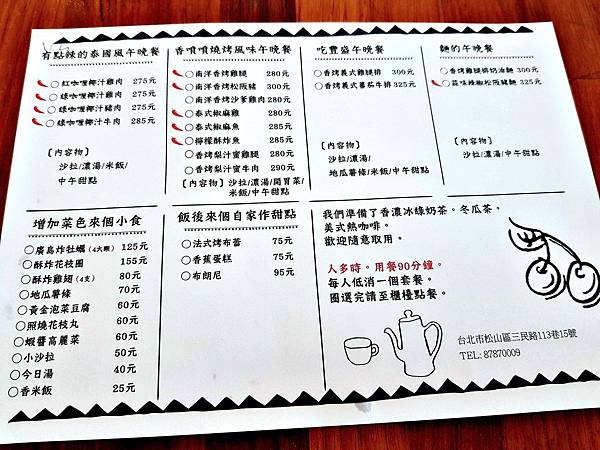 有點辣的泰國風午晚餐
○紅咖哩椰汁雞肉 275元
○綠咖哩椰汁雞肉 275元
○綠咖哩椰汁豬肉 275元
○綠咖哩椰汁牛肉 285元
〔內容物〕
沙拉/濃湯/米飯/
中午甜點
香噴噴燒烤風味午晚餐
○南洋香烤雞腿 280元
○南洋香烤松阪豬 300元
○南洋香烤沙爹雞肉 280元
○泰式椒麻雞 280元
○泰式椒麻魚 285元
○檸檬酥炸魚 285元
○香烤梨汁蜜雞腿 280元
○香烤梨汁蜜牛肉 290元
〔內容物〕沙拉/濃湯/開胃菜/
米飯/中午甜點
吃豐盛午晚餐
○香烤義式雞腿排 300元
○香烤義式番茄牛排 325元
〔內容物〕
沙拉/濃湯/
地瓜薯條/米飯/中午甜點
麵的午晚餐
○香烤雞腿排奶油麵 300元
○蒜味辣椒松阪豬麵 325元
〔內容物〕
沙拉/濃湯/中午甜點
增加菜色來個小食
○廣島炸牡蠣(4大顆) 125元
○酥炸花枝圈 155元
○酥炸雞翅(4支) 80元
○地瓜薯條 70元
○黃金泡菜豆腐 60元
○照燒花枝丸 60元
○蝦醬高麗菜 60元
○小沙拉 50元
○今日湯 40元
○香米飯 25元
飯後來個自家作甜點
○法式烤布蕾 75元
○香蕉蛋糕 75元
○布朗尼 95元
我們準備了香濃冰綠奶茶。冬瓜茶。
美式熱咖啡。
歡迎隨意取用。
人多時。用餐90分鐘。
每人低消一個套餐。
圈選完請至櫃檯點餐。
台北市松山區三民路113巷15號
TEL: 87870009